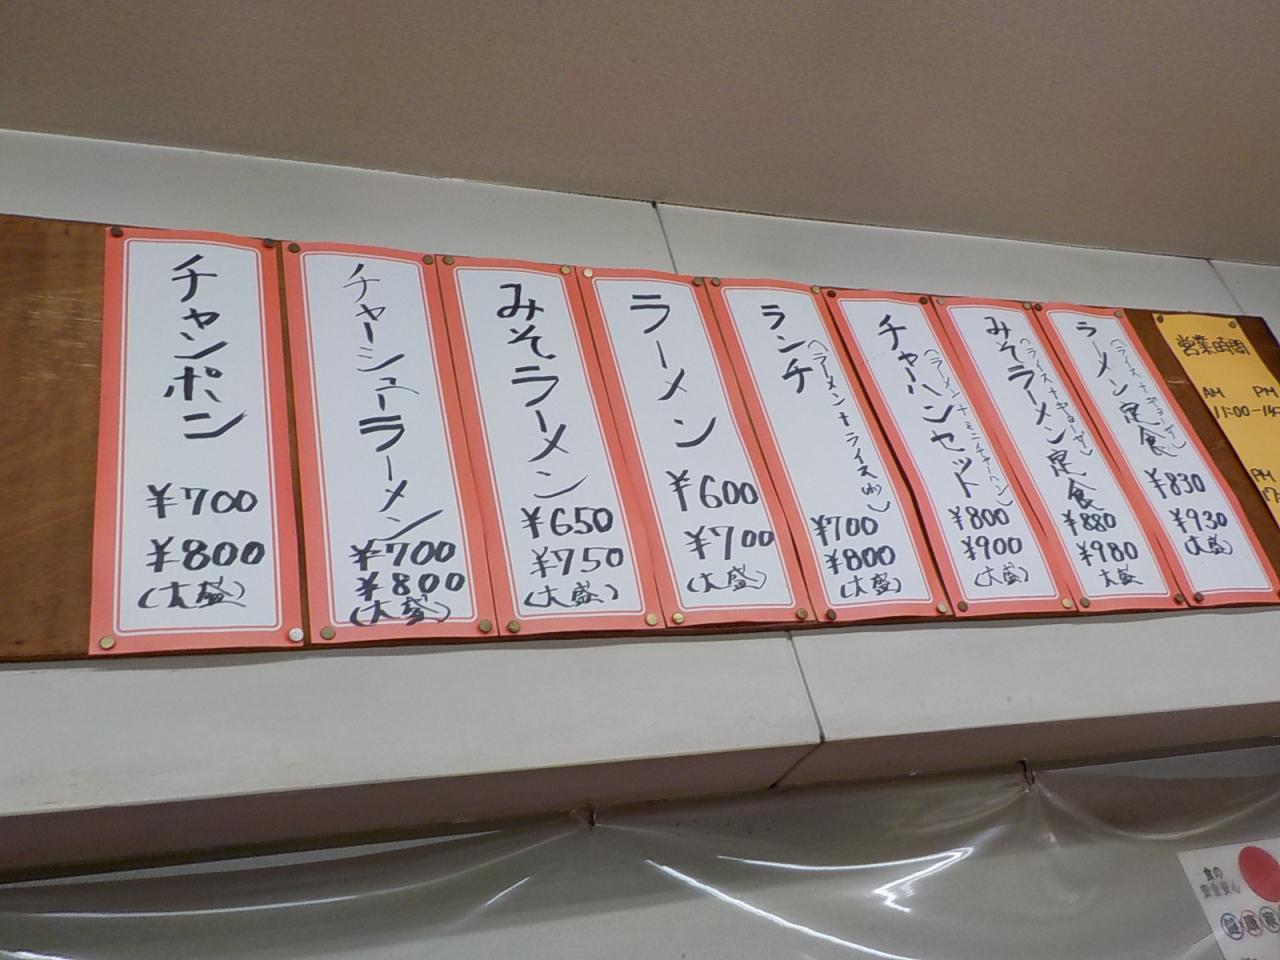 チャンポン
¥700
¥800
(大盛)
チャーシューラーメン
¥700
¥800
(大盛)
みそラーメン
¥650
¥750
(大盛)
ラーメン
¥600
¥700
(大盛)
ランチ
(ラーメン+ライス(小))
¥700
¥800
(大盛)
チャーハンセット
(ラーメン+ミニチャーハン)
¥800
¥900
(大盛)
みそラーメン定食
(ライス+ギョーザ)
¥880
¥980
大盛
ラーメン定食
(ライス+ギョーザ)
¥830
¥930
(大盛)
営業時間
AM PM
11:00-14
PM
食の
安全安心